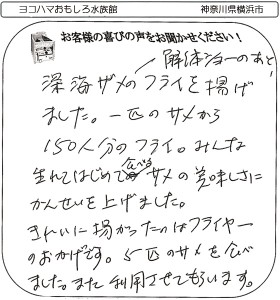 ヨコハマおもしろ水族館
神奈川県横浜市
お客様の喜びの声をお聞かせください!
解体ショーのあと
深海ザメのフライを揚げ
ました。一匹のサメから
150人分のフライ。みんな
生れてはじめて食べるサメの美味しさに
かんせいを上げました。
きれいに揚がったのはフライヤー
のおかげです。5匹のサメを食べ
ました。また利用させてもらいます。